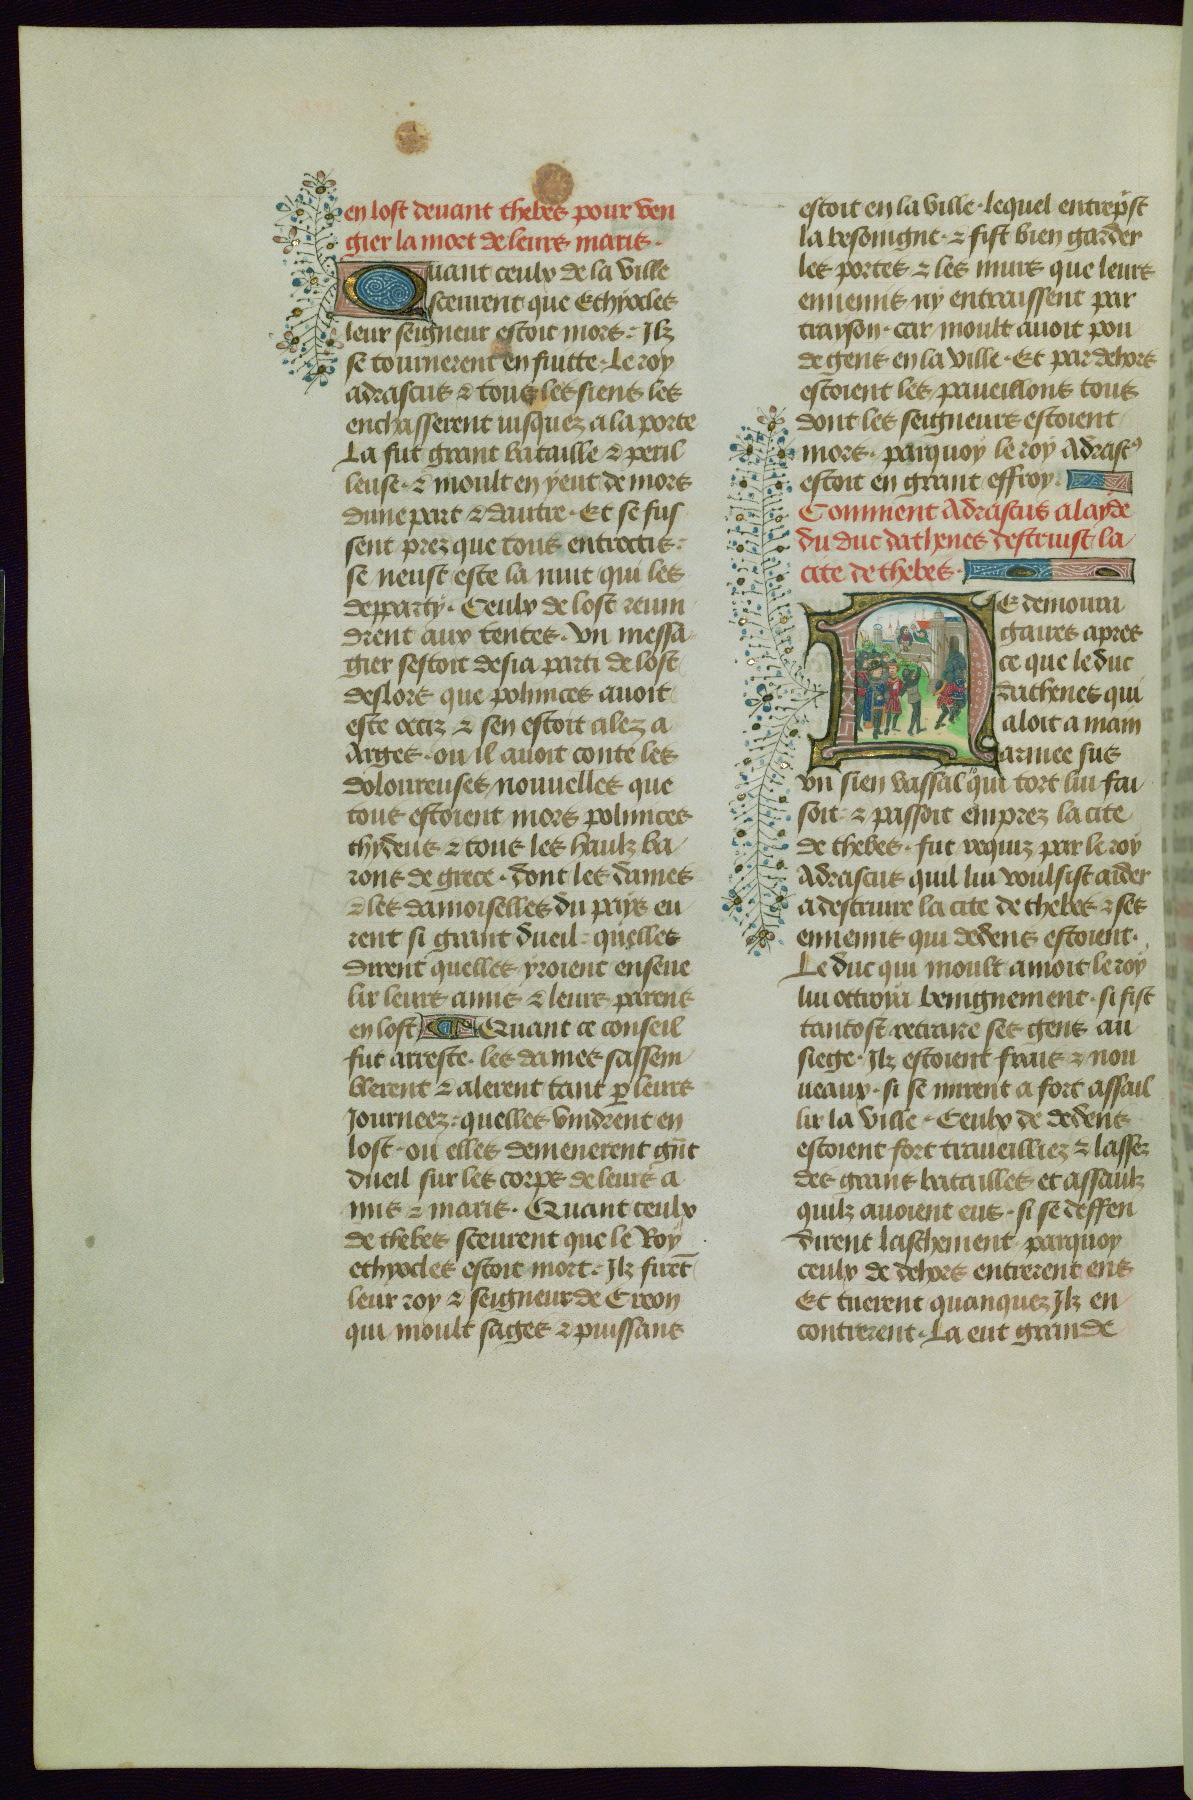 en lost deuant thebes pour ven
gier la mort de leurs maris·
Quant ceulx de la ville
sceurent que Ethyocles
leur seigneur estoit mort· Ilz
se tournerent en fuitte· Le roy
adrascus & tous les siens les
enchasserent iusquez a la porte
La fut grant bataille & peril
leuse· & moult en y eut de mors
dune part & dautre· Et se fus
sent prez que tous entroctis·
se neust este la nuit qui les
departy· Ceulx de lost reuin
drent aux tentes· Vn messa
gier sestoit desia parti de lost
deslors que polinices auoit
este occiz & sen estoit alez a
Arges· ou il auoit conte les
doloureuses nouuelles que
tous estoient mors polinices
thydeus & tous les haulz ba
rons de grece· dont les dames
& les damoiselles du pays eu
rent si grant dueil· quelles
dirent quelles yroient enseue
lir leurs amis & leurs parens
en lost Quant ce conseil
fut arreste· les dames sassem
blerent & alerent tant p leurs
Journeez· quelles vindrent en
lost· ou elles demenerent gnt
dueil sur les corps de leurs a
mis & maris· Quant ceulx
de thebes sceurent que le Roy
ethyocles estoit mort· Ilz firēt
leur roy & seigneur de Creon
qui moult sages & puissans
estoit en la ville· lequel entrepst
la besoingne· & fist bien garder
les portes & les murs que leurs
ennemis ny entraissent par
trayson· car moult auoit pou
de gens en la ville· Et par dehors
estoient les paueillons tous
dont les seigneurs estoient
mors· parquoy le roy Adrasc9
estoit en grant effroy·
Comment Adrascus a layde
du duc dathenes destruist la
cite de thebes·
NE demoura
gaires apres
ce que le duc
dathenes qui
aloit a main
armee sus
vn sien vassal qui tort lui fai
soit· & passoit emprez la cite
de thebes· fut requiz par le roy
Adrascus quil lui voulsist aider
a destruire la cite de thebes & ses
ennemis qui dedens estoient·
Le duc qui moult amoit le roy
lui ottroya benignement· si fist
tantost retraire ses gens au
siege· Ilz estoient frais & nou
ueaux· si se mirent a fort assail
lir la ville· Ceulx de dedens
estoient fort traueilliez & lassez
des grans batailles et assaulz
quilz auoient eus· si se deffen
dirent laschement parquoy
ceulx de dehors entrerent ens
Et tuerent quanquez Ilz en
contrerent· La eut grande